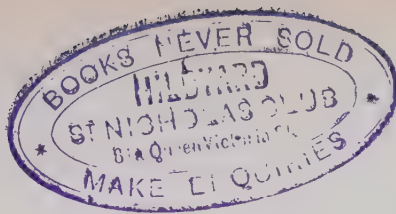 BOOKS NEVER SOLD
HILDYARD
ST NICHOLAS CLUB
Queen Victoria St
MAKE ENQUIRIES